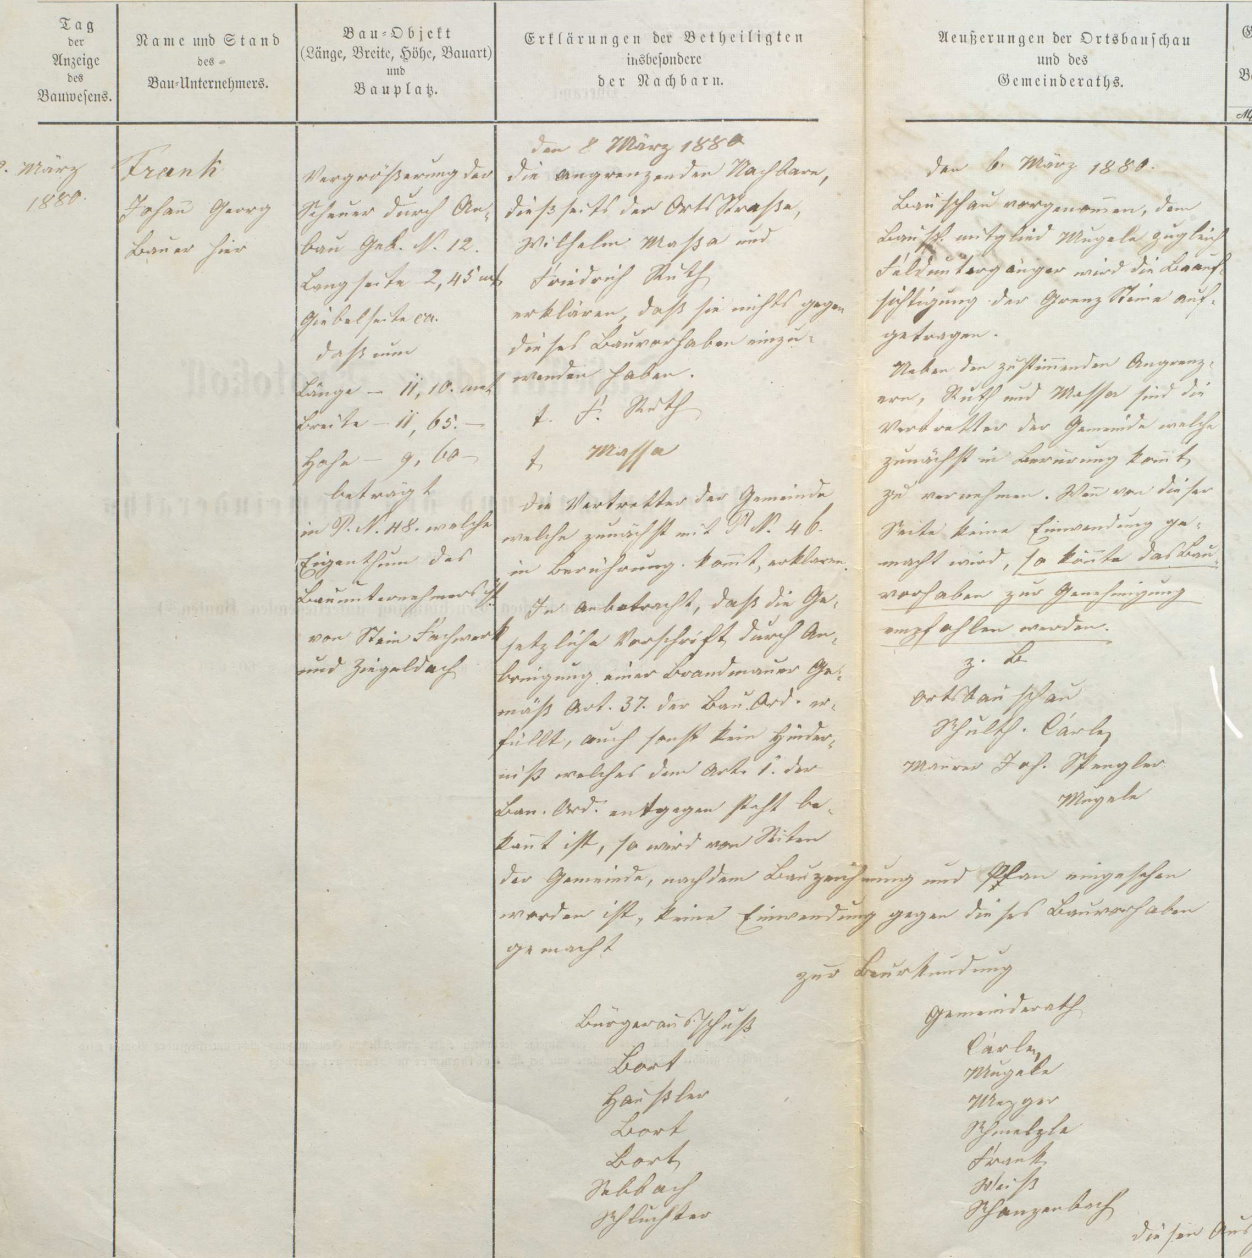 Tag
der
Anzeige
des
Bauwesens.
Name und Stand
des
Bau-Unternehmers.
Bau-Objekt
(Länge, Breite, Höhe, Bauart)
und
Bauplatz.
Erklärungen der Betheiligten
insbesondere
der Nachbarn.
Aeußerungen der Ortsbauschau
und des
Gemeinderaths.
März
1880.
Frank
Johañ Georg
Bauer hier
Vergrößerung der
Scheuer durch An-
bau Geb. N. 12.
Langseite 2,45 mt
Giebelseite ca.
daß nun
Länge – 11,10. mt
Breite – 11,65. –
Höhe – 9,60 –
beträgt
in P. N. 48. welche
Eigenthum des
Bauunternehmers ist
von Stein Fachwerk
und Ziegeldach
den 8 März 1880
die angrenzenden Nachbarn,
dießseits der Orts Straße,
Wilhelm Maßa und
Friedrich Ruth
erklären, daß sie nichts gegen
dieses Bauvorhaben einzu-
wenden haben.
t. F. Ruth
t Massa
die Vertretter der Gemeinde
welche zunächst mit P. N. 46.
in Berührung komt, erklären.
In anbetracht, daß die Ge-
setzliche Vorschrift durch An-
bringung einer Brandmauer Ge-
mäß Art. 37. der Bau. Ord. er-
füllt, auch sonst kein Hinder-
niß welches dem Art. der
Bau. Ord. entgegen steht be-
kañt ist, so wird von Seiten
der Gemeinde, nachdem Bauzeichnung und Plan eingesehen
worden ist, keine Einwendung gegen dieses Bauvorhaben
gemacht
zur Beurkundung
Bürgerausschuß
Bort
Häußler
Bort
Bort
Sebbach
Schluchter
den 6. März 1880.
Bauschau vorgenomen, dem
Bausch. mitglied Mugele zugleich
Felduntergänger wird die Beauf-
sichtigung der Grenz Steine auf-
getragen.
Neben den zustimenden Angrenz-
ern, Ruth und Massa sind die
Vertretter der Gemeinde welche
zunächst in Berürung komt
zu vernehmen. Wen von dieser
Seite keine Einwendung ge-
macht wird, so köñte das Bau-
vorhaben zur Genehmigung
empfohlen werden.
z. B.
Ortsbauschau
Schulth. Carle
Maurer Joh. Spengler
Mugele
Gemeinderath
Carle
Mugele
Mezger
Schmelzle
Frank
Weiß
Schanzenbach
diesen Aus